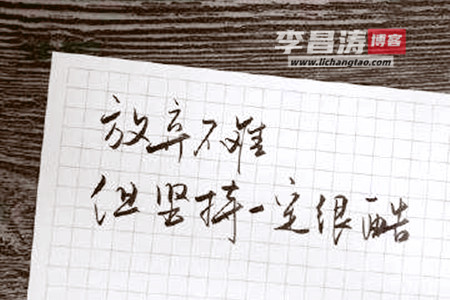 李昌涛博客
www.lichangtao.com
放弃不难
但坚持一定很酷